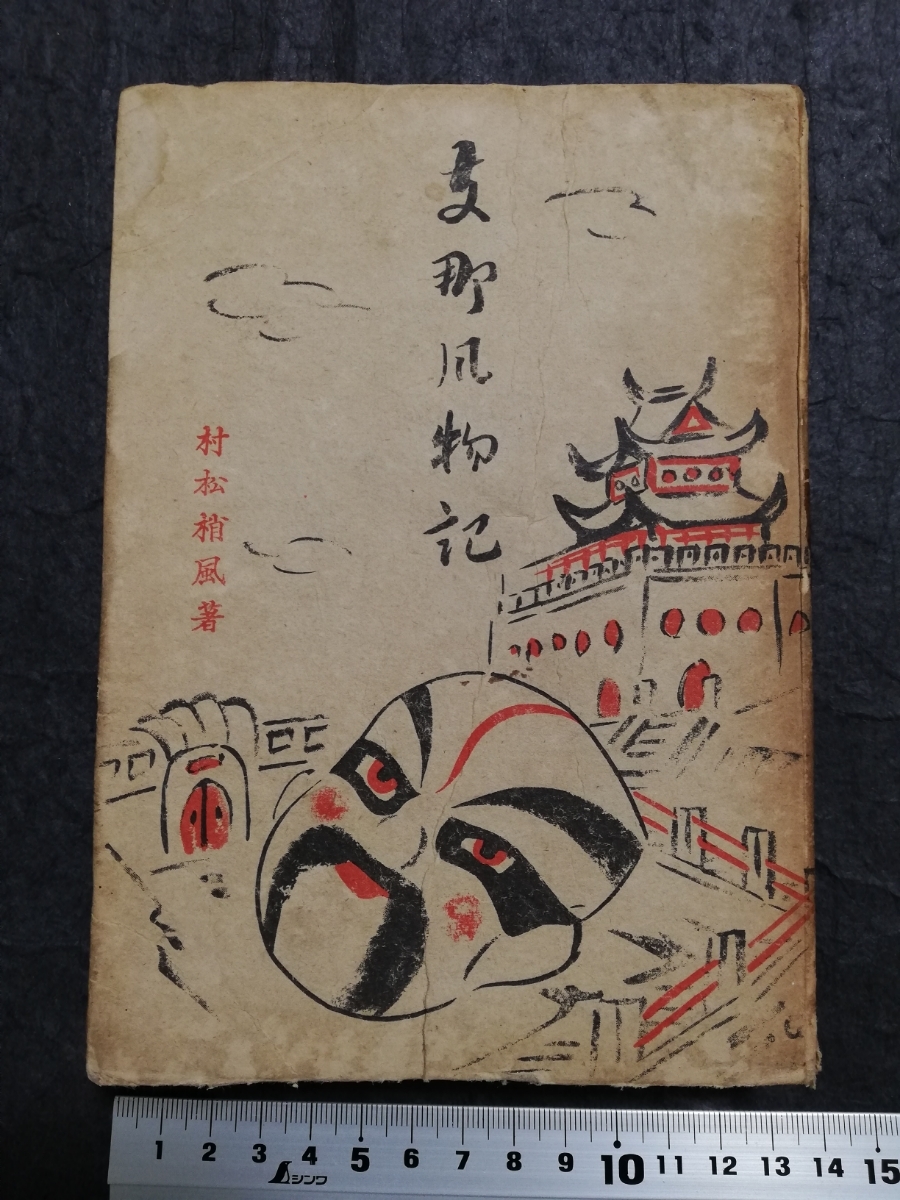 支那风物記
村松梢風著
1 2 3 4 5 6 7 8 9 10 11 12 13 14 15
シンワ